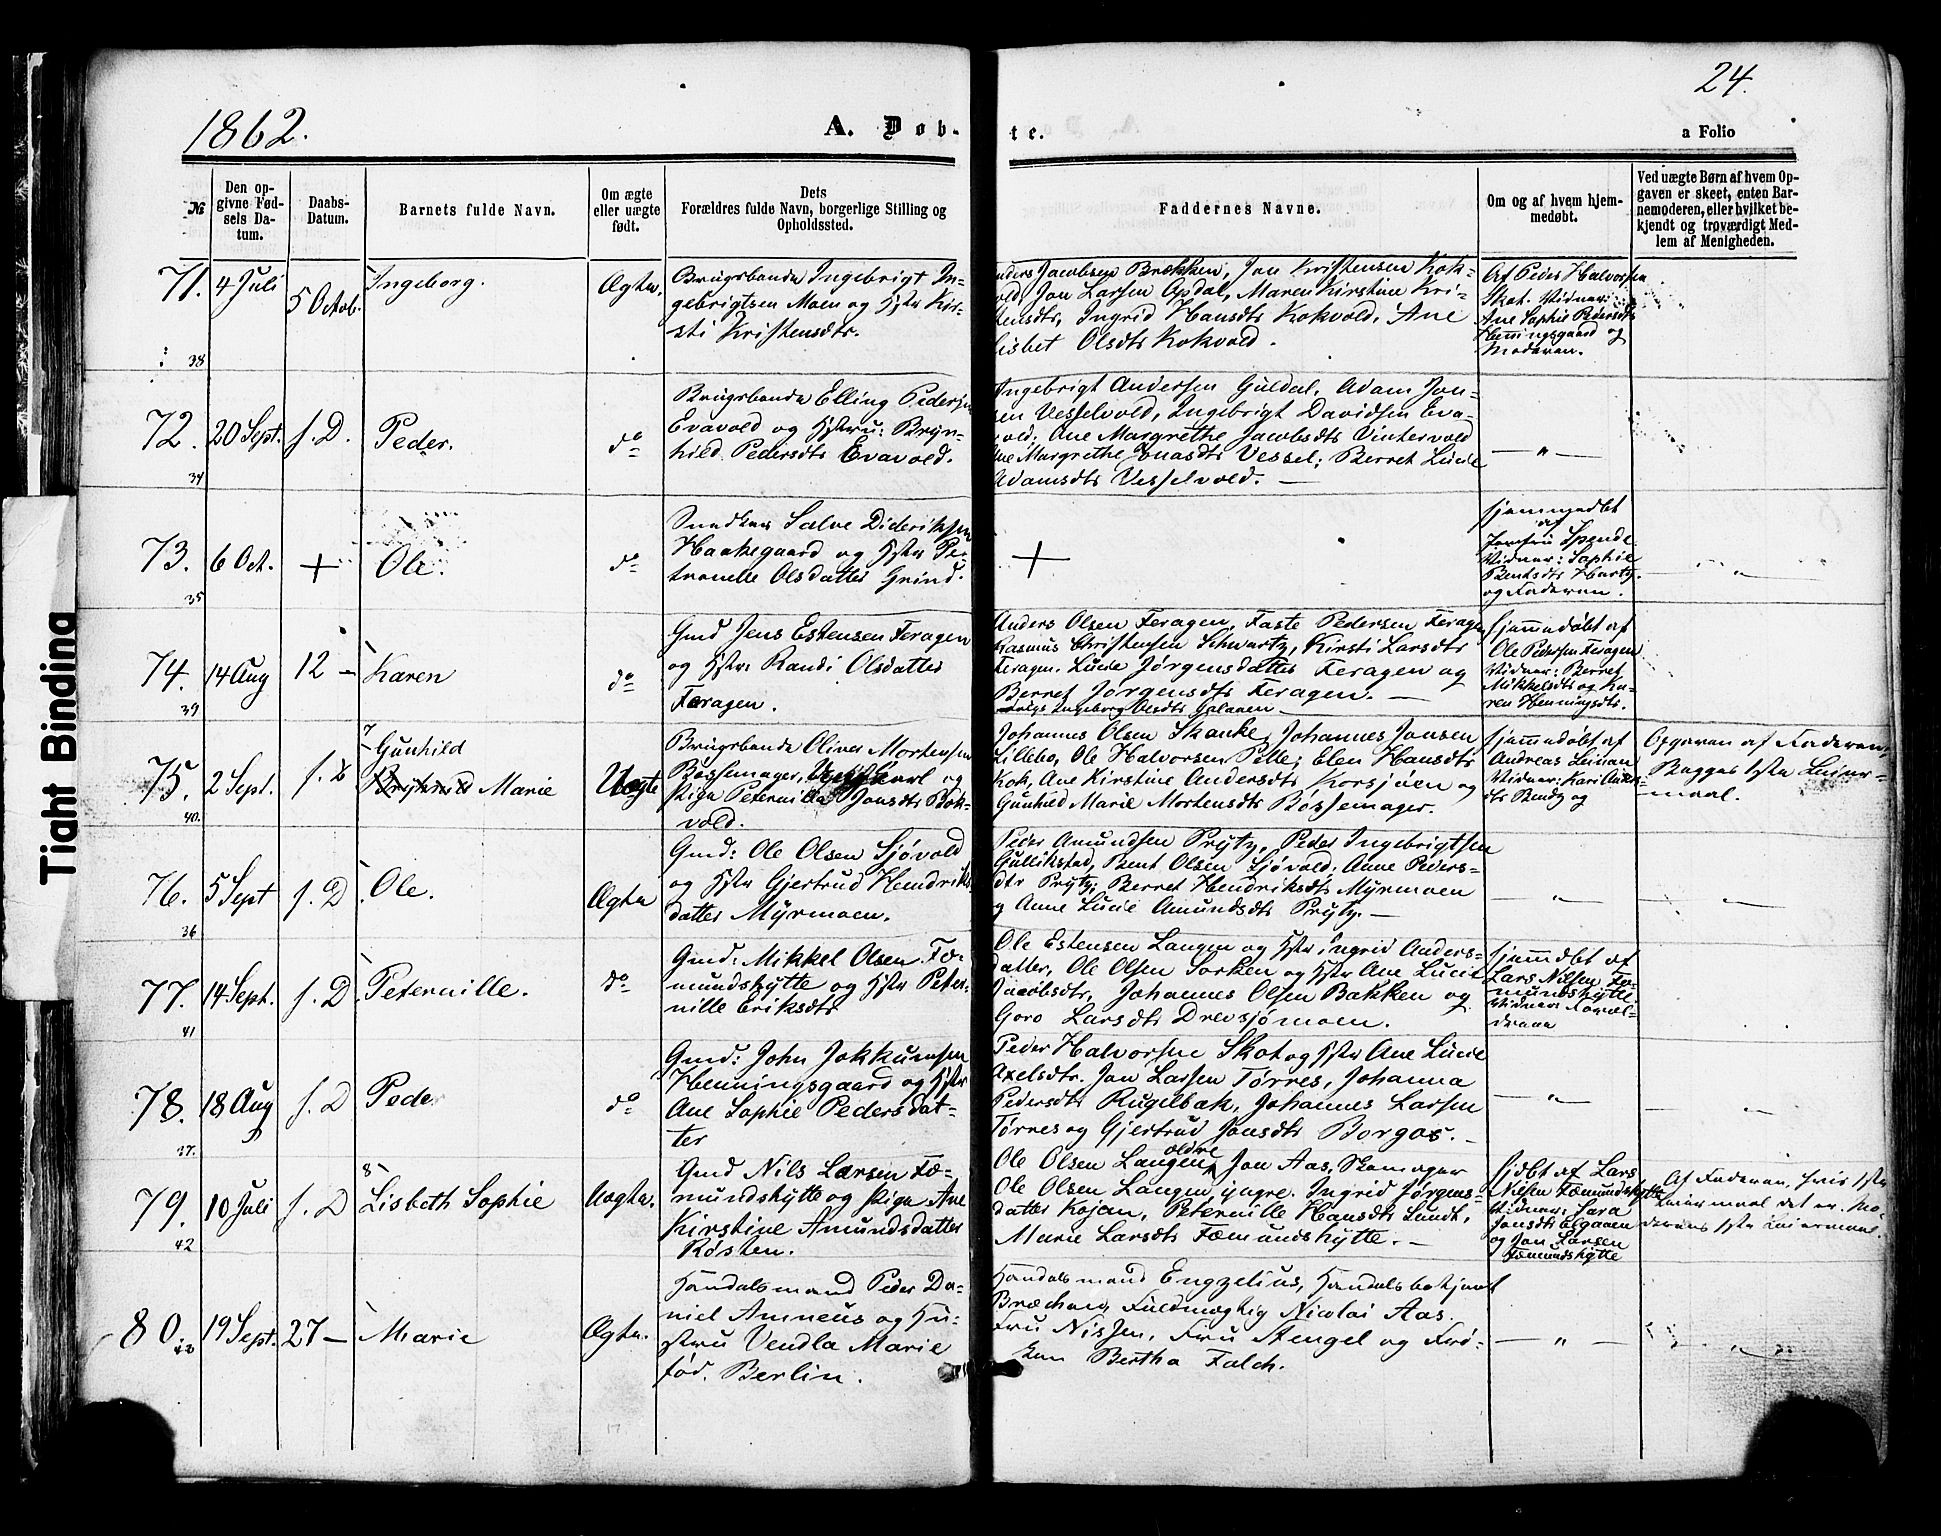 24.
1862.
A. Døb-
te.
a Folio
№
Den op-
givne Fød-
sels Da-
tum.
Daabs-
Datum.
Barnets fulde Navn.
Om ægte
eller uægte
født.
Dets
Forældres fulde Navn, borgerlige Stilling og
Opholdssted.
Faddernes Navne.
Om og af hvem hjem-
medøbt.
Ved uægte Børn af hvem Op-
gaven er skeet, enten Bar-
nemoderen, eller hvilket be-
kjendt og troværdigt Med-
lem af Menigheden.
71.
38
4 Juli
5 Octob.
Ingeborg.
Ægte.
Brugsbonde Ingebrigt In-
gebrigtsen Moen og Hstr Kir-
sti Kristensdtr.
Anders Jacobsen Brækken, Jon Kristensen Kok-
vold, Jon Larsen Opdal, Maren Kirstine Kri-
stensdtr, Ingrid Hansdtr Kokvold, Ane
Lisbet Olsdtr Kokvold.
Af Peder Halvorsen
Skot. Vidner:
Ane Sophie Pedersdtr
Henningsgaard og
Moderen.
72.
34
20 Sept.
s. D.
Peder.
do
Brugsbonde Elling Pedersen
Evavold og Hstru: Bryn-
hild Pedersdtr Evavold.
Ingebrigt Andersen Guldal, Adam Jon-
sen Vesselvold, Ingebrigt Davidsen Eva-
vold; Ane Margrethe Jacobsdtr Vintervold
Ane Margrethe Enasdtr Vessel; Berret Lucie
Adamsdtr Vesselvold. —
— " —
73.
35
6 Oct.
+
Ole.
do
Snedker Salve Dideriksen
Haakegaard og Hstr Pe-
tronelle Olsdatter Grind.
+
Hjemmedbt
af
Jomfru Spende
Vidner: Sophie
Bentsdtr Hartz.
og Faderen.
— " —
74.
39
14 Aug
12 —
Karen
do
Gmd Jens Estensen Feragen
og Hstr: Randi Olsdatter
Feragen.
Anders Olsen Feragen, Faste Pedersen Feragen
Rasmus Christensen Schwartz, Kirsti Larsdtr
Feragen. Lucie Jørgensdatter Feragen og
Berret Jørgensdtr Feragen. —
Hjemmdøbt af
Ole Pedersen Feragen
Vidner: Berret
Mikkelsdtr og Ka-
ren Henningsdtr.
75.
40.
2 Sept.
s. D
7
Gunhild
Marie
Uægte
Brugsbonde Oliver Mortensen
Bossemager, Ungkarl og
Pige Peternille Jonsdtr Kok-
vold.
Johannes Olsen Skanke, Johannes Jonsen
Lillebo, Ole Halvorsen Pelle; Elen Hansdtr
Kok, Ane Kirstine Andersdtr Korsjøen og
Gunhild Marie Mortensdtr Bossemager.
Hjemmdøbt af
Andreas Leinan
Vidner: Kari Anders-
dtr Bendz og
Opgaven af Faderen,
Begges 1ste Leier-
maal.
76.
36
5 Sept
s. D.
Ole.
Ægte
Gmd: Ole Olsen Sjøvold
og Hstr Gjertrud Hendriks
datter Myrmoen.
Peder Amundsen Prytz, Peder Ingebrigtsen
Gullikstad, Bent Olsen Sjøvold; Anne Peders-
dtr Prytz; Berret Hendriksdtr Myrmoen
og Anne Lucie Amundsdtr Prytz. —
— " —
— " —
77.
41
14 Sept.
s. D.
Peternille.
do
Gmd: Mikkel Olsen Fæ-
mundshytte og Hstr Peter-
nille Eriksdtr
Ole Estensen Langen og Hstr Ingrid Anders-
datter, Ole Olsen Sorken og Hstr Ane Lucie
Jacobsdtr, Johannes Olsen Bakken og
Goro Larsdtr Drevsjømoen.
Hjemmdbt af
Lars Nilsen Fæ-
mundshytte.
Vidner Foræl-
drene
78.
37.
18 Aug
s. D
Peder
do
Gmd: John Jokkumsen
Henningsgaard og Hstr
Ane Sophie Pedersdat-
ter
Peder Halvorsen Skot og Hstr Ane Lucie
Axelsdtr. Jon Larsen Tørres, Johanna
Pedersdtr Rugelbak, Johannes Larsen
Tørres og Gjertrud Jonsdtr Borgos. —
— " —
— " —
79.
42
10 Juli
s. D
8
Lisbeth Sophie
Uægte.
Gmd Nils Larsen Fæ-
mundshytte og Pige Ane
Kirstine Amundsdatter
Røsten.
Ole Olsen Langen ældre, Jon Aas, Skomager
Ole Olsen Langen yngre. Ingrid Jørgens-
datter Kojan, Peternille Hansdtr Lundt,
Marie Larsdtr Fæmundshytte. —
Hjdbt af Lars
Nilsen Fæmundshytte
Vidner: Sara
Jonsdtr Elgaaen
og Jon Larsen
Fæmundshytte
Af Faderen, hvis 1ste
Leiermaal det er. Mo-
derens 1ste Leiermaal.
80.
43
19 Sept.
27 —
Marie
Ægte.
Handelsmand Peder Da-
niel Amneus og Hu-
stru Vendla Marie
fød. Berlin.
Handelsmand Engzelius, Handelsbetjent
Brechan, Fuldmægtig Nicolai Aas.
Fru Nissen, Fru Stengel og Frø-
ken Bertha Falch.
— " —
— " —
Tight Binding